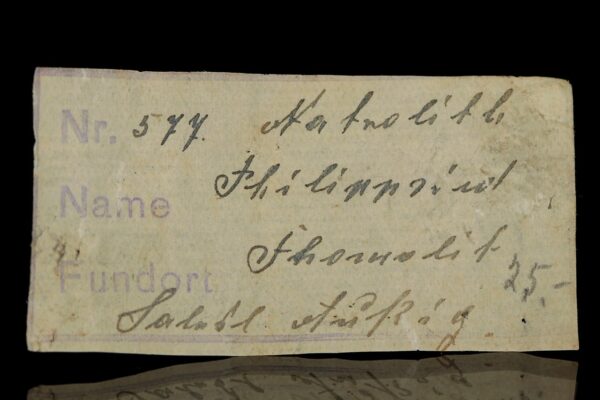 Nr. 577. Natrolith
Name
Thomolit
Fundort 25.-
Salesl Außig